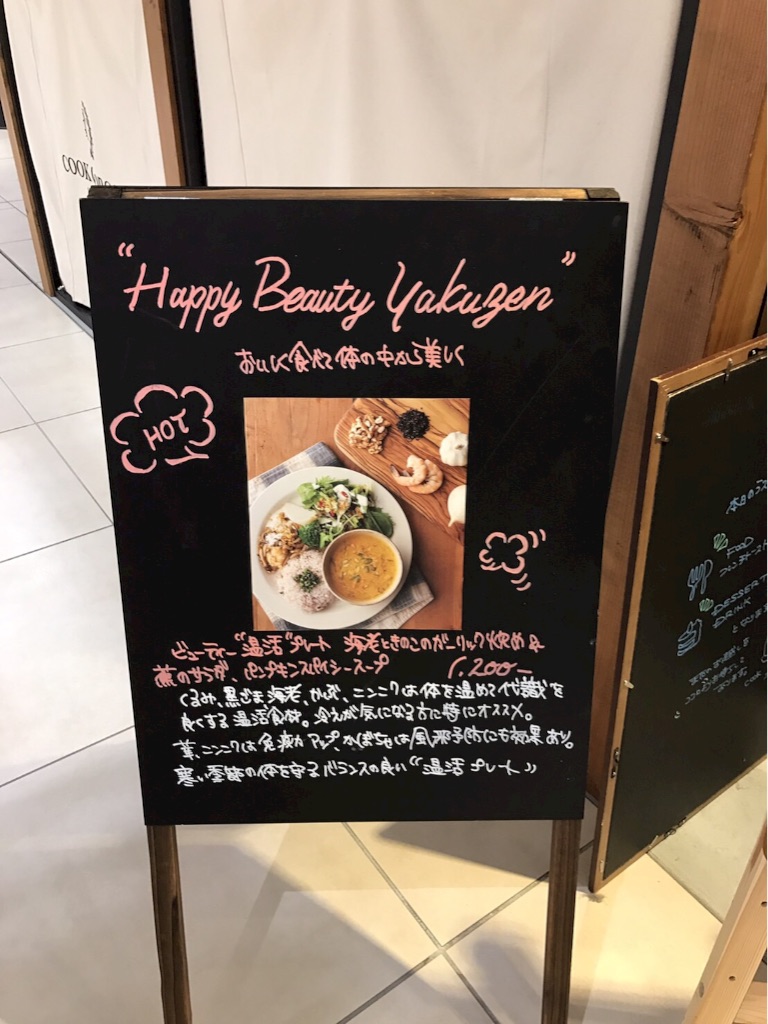 COOK
"Happy Beauty Yakuzen"
おいしく食べて体の中から美しく
HOT
ビューティー"温活"プレート 海老ときのこのガーリック炒め &
蕪のサラダ、パンプキンスパイシースープ 1,200-
くるみ、黒ごま、海老、かぶ、ニンニクは体を温めて代謝を
良くする温活食材。冷えが気になる方に特にオススメ。
ニンニクは免疫力アップ、かぼちゃは風邪予防にも効果あり。
寒い季節の体を守るバランスの良い"温活プレート"
本日の
FOOD
DESSERT
DRINK